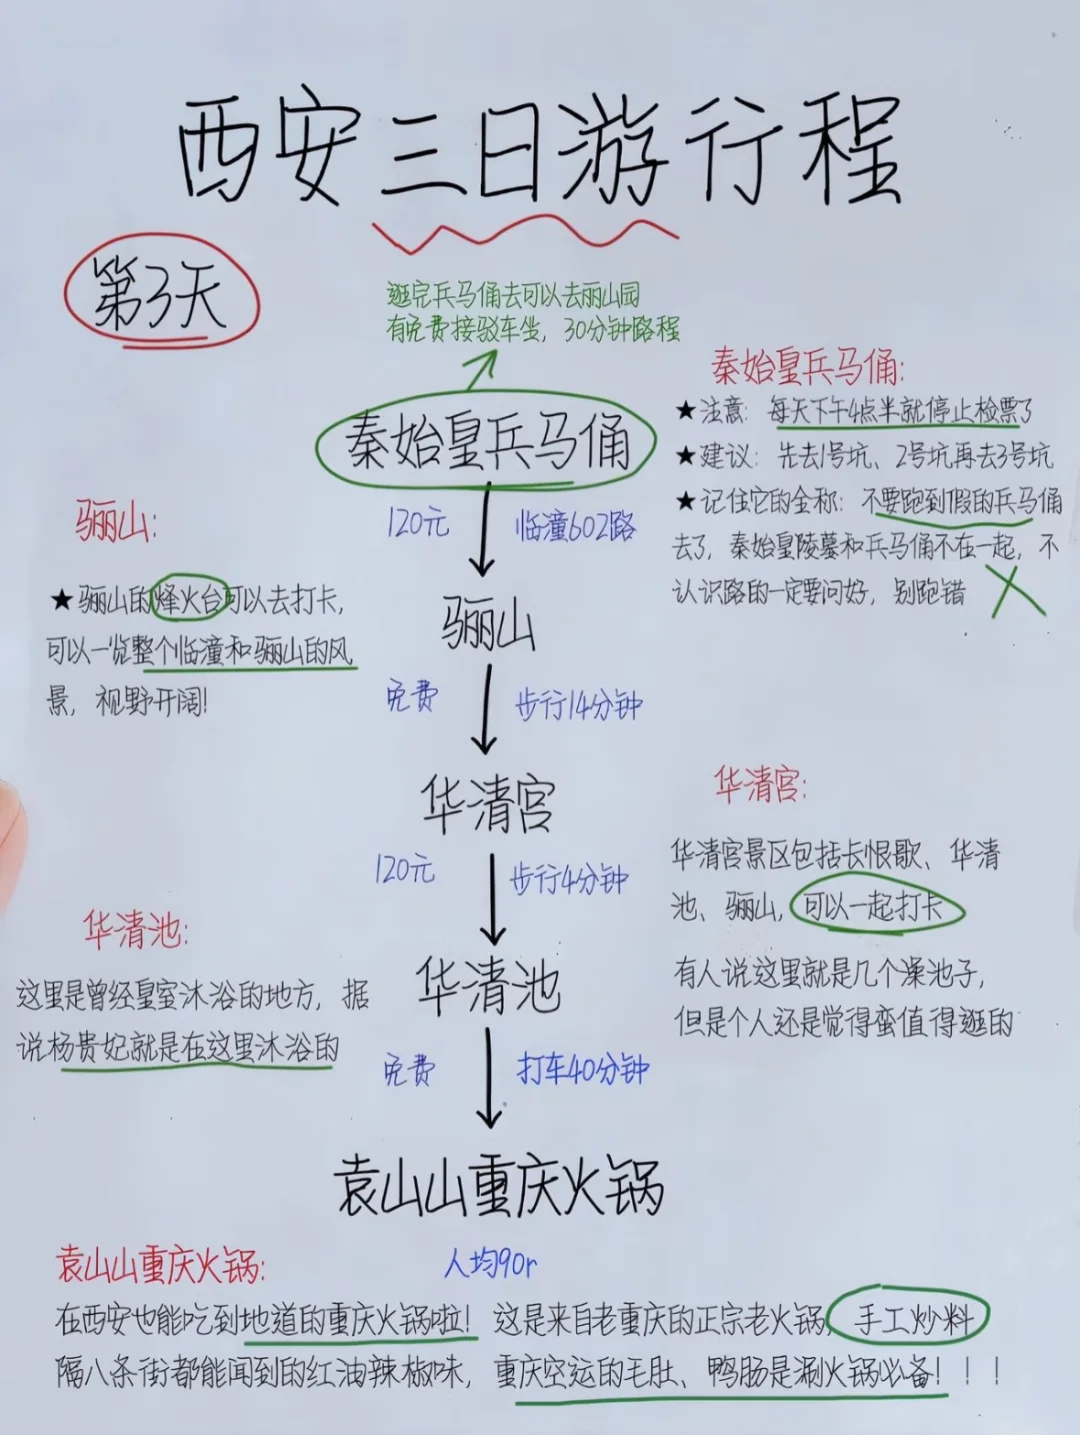 西安三日游行程
第3天
逛完兵马俑去可以去丽山园
有免费接驳车坐，30分钟路程
秦始皇兵马俑
秦始皇兵马俑：
★注意：每天下午4点半就停止检票了
★建议：先去1号坑、2号坑再去3号坑
★记住它的全称：不要跑到假的兵马俑
去了，秦始皇陵墓和兵马俑不在一起，不
认识路的一定要问好，别跑错
120元
临潼602路
骊山：
★骊山的烽火台可以去打卡，
可以一览整个临潼和骊山的风
景，视野开阔！
骊山
免费
步行14分钟
华清宫
华清宫：
华清宫景区包括长恨歌、华清
池、骊山，可以一起打卡
有人说这里就是几个澡池子，
但是个人还是觉得蛮值得逛的
120元
步行4分钟
华清池：
这里是曾经皇室沐浴的地方，据
说杨贵妃就是在这里沐浴的
华清池
免费
打车40分钟
袁山山重庆火锅
袁山山重庆火锅：
人均90r
在西安也能吃到地道的重庆火锅啦！这是来自老重庆的正宗老火锅，手工炒料
隔八条街都能闻到的红油辣椒味，重庆空运的毛肚、鸭肠是涮火锅必备！！！